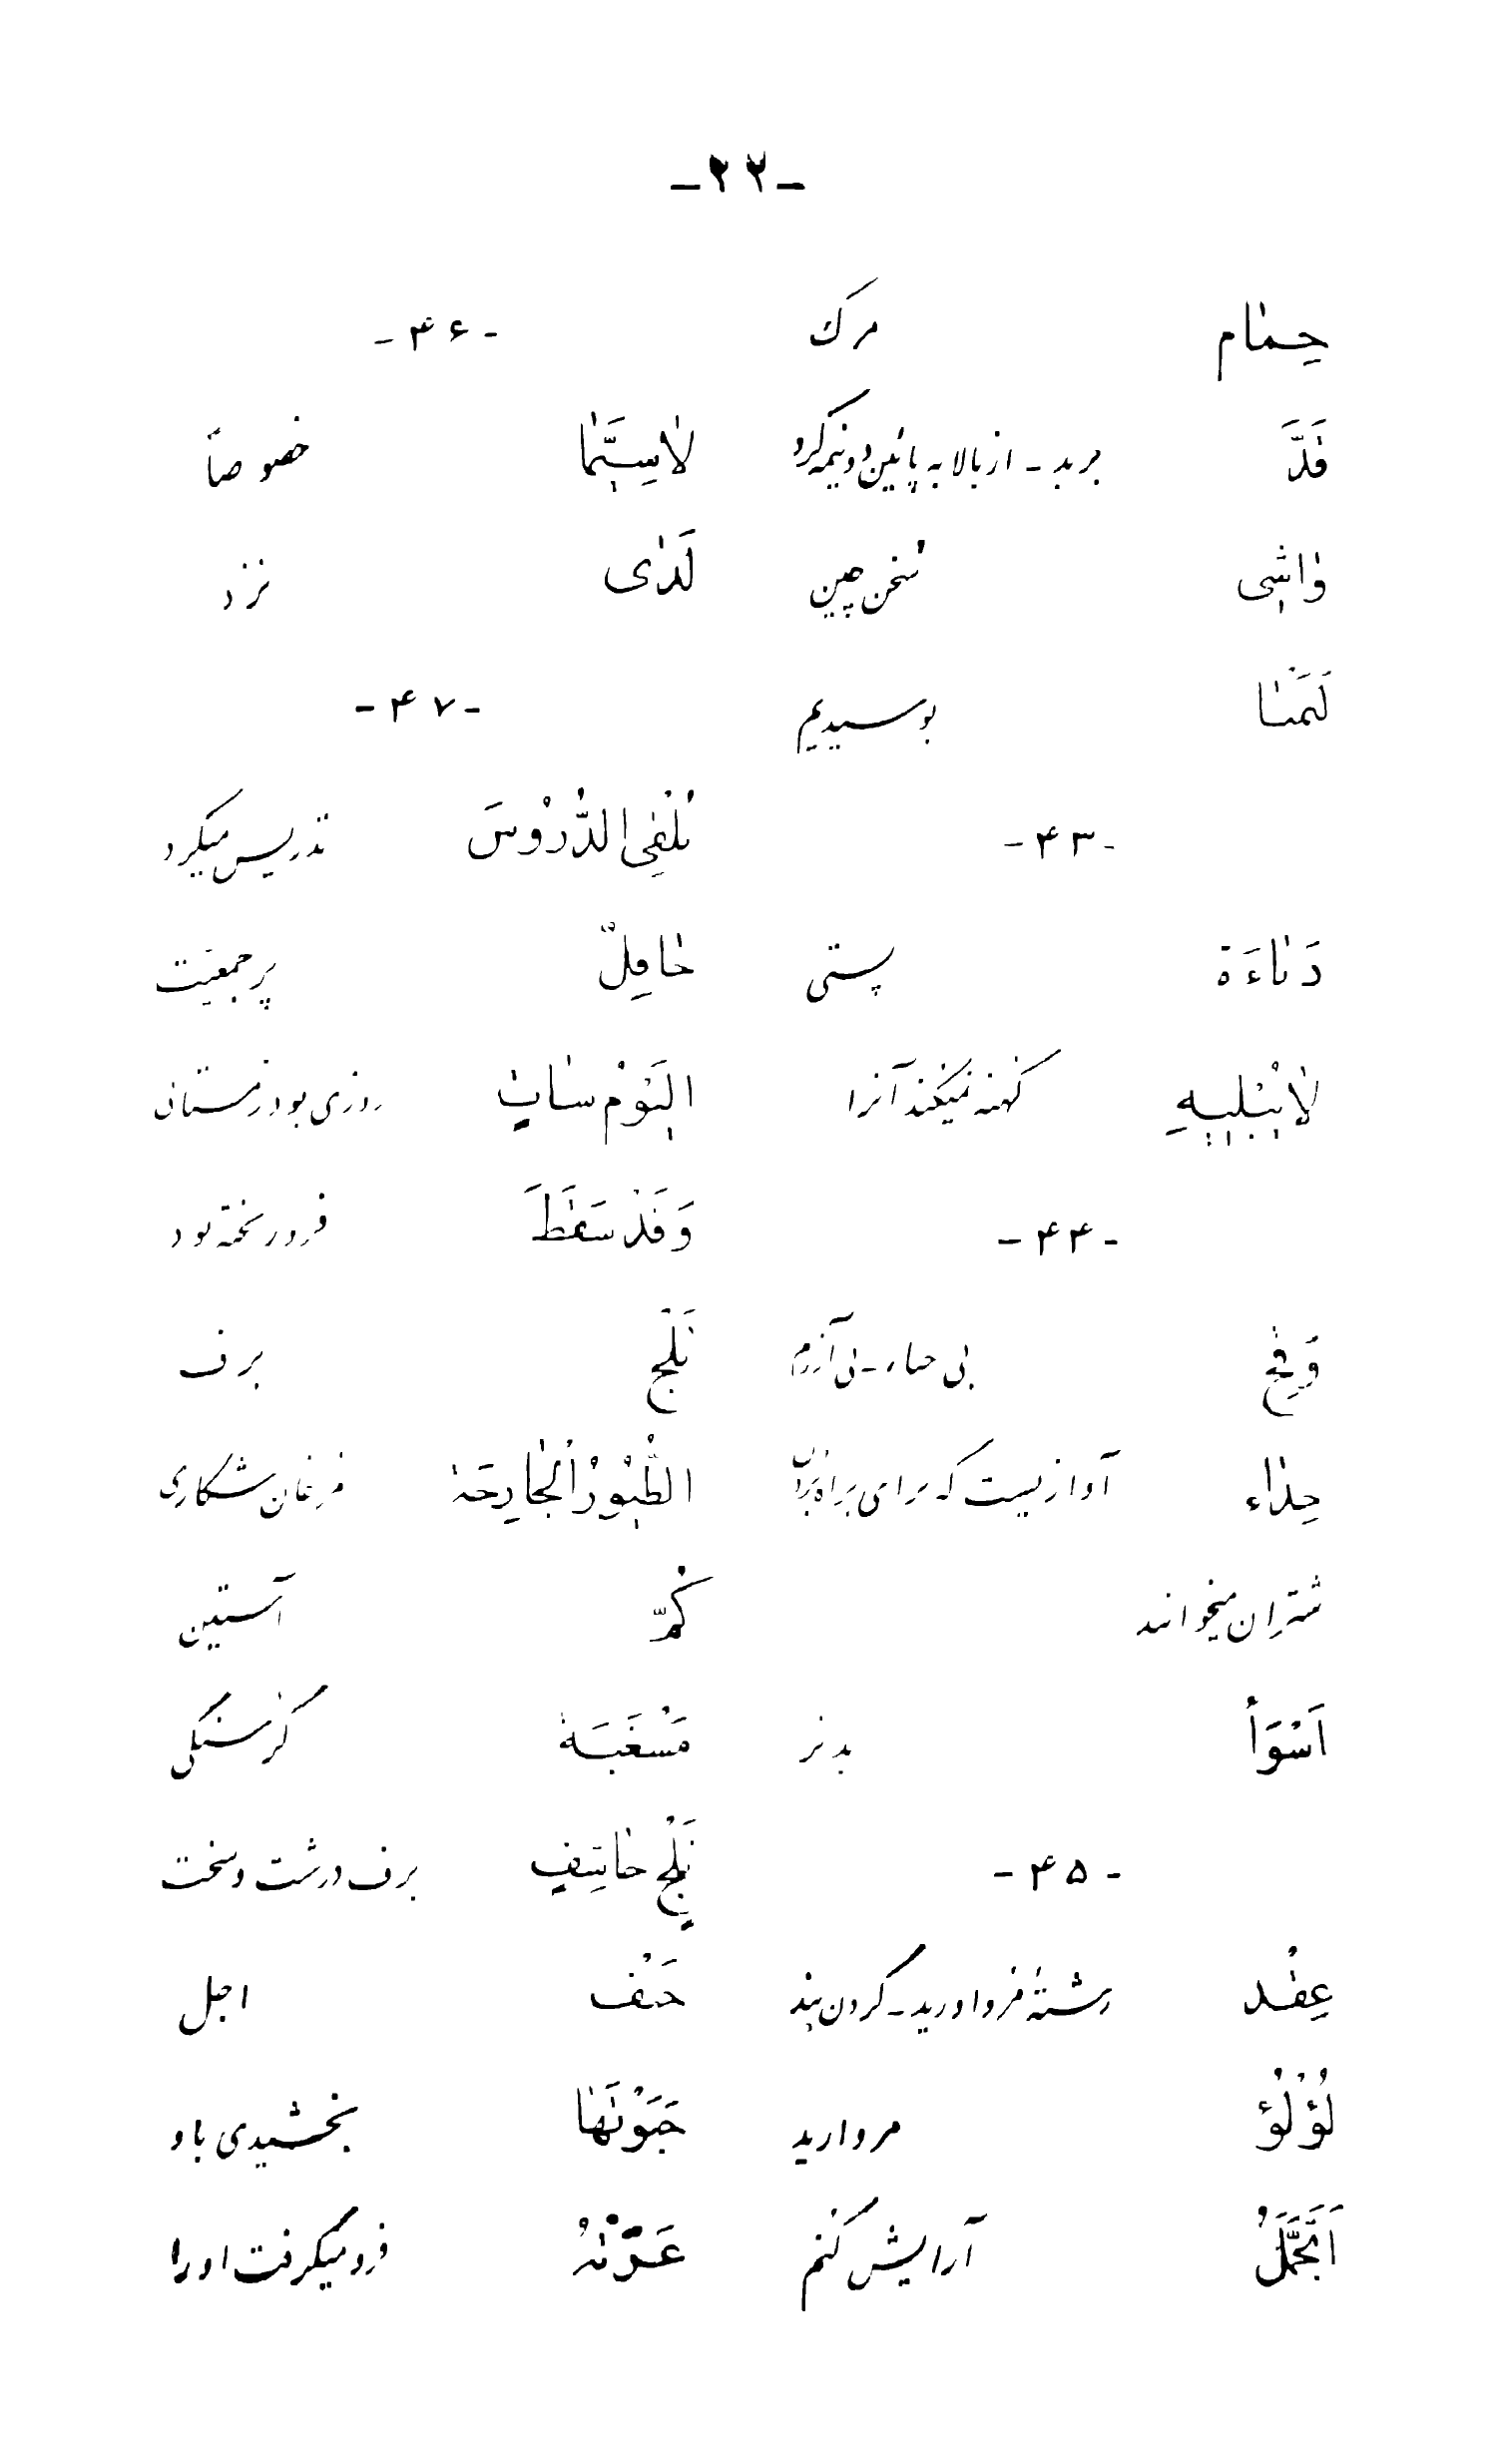 -۲۲-
حِمٰام مرگ
قَدَّ برید - از بالا به پائین دو نیمه کرد
وٰاشی سخن چین
لَثَمنٰا بوسیدیم
-۴۳-
دَنٰاءَة پستی
لٰایُبْلیهِ کهنه نمیکند آنرا
-۴۴-
وَقِح بی حیاء - بی آزرم
حِدٰاء آوازیست که برای براه بردن
شتران میخوانند
اَسْوَأ بدتر
-۴۵-
عِقْد رشتهٔ مروارید - گردن بند
لُؤْلُؤ مروارید
اَتَجَمَّلُ آرایش کنم
-۴۶-
لٰاسِیَّمٰا خصوصاً
لَدٰی نزد
-۴۷-
یُلْقِی الدُّرُوْسَ تدریس میکرد
حٰافِلٌ پر جمعیّت
الیَوْمُ شاتٍ روزی بود زمستانی
وَقَدْ سَقَطَ فرو ریخته بود
ثَلْج برف
الطُّیُوْرُ الْجٰارِحَة مرغان شکاری
کُمّ آستین
مَسْغَبَة گرسنگی
ثَلْجٍ خاشِفٍ برف درشت و سخت
حَتْف اجل
حَبَوْتَهٰا بخشیدی باو
عَرَتْهُ فرو میگرفت اورا